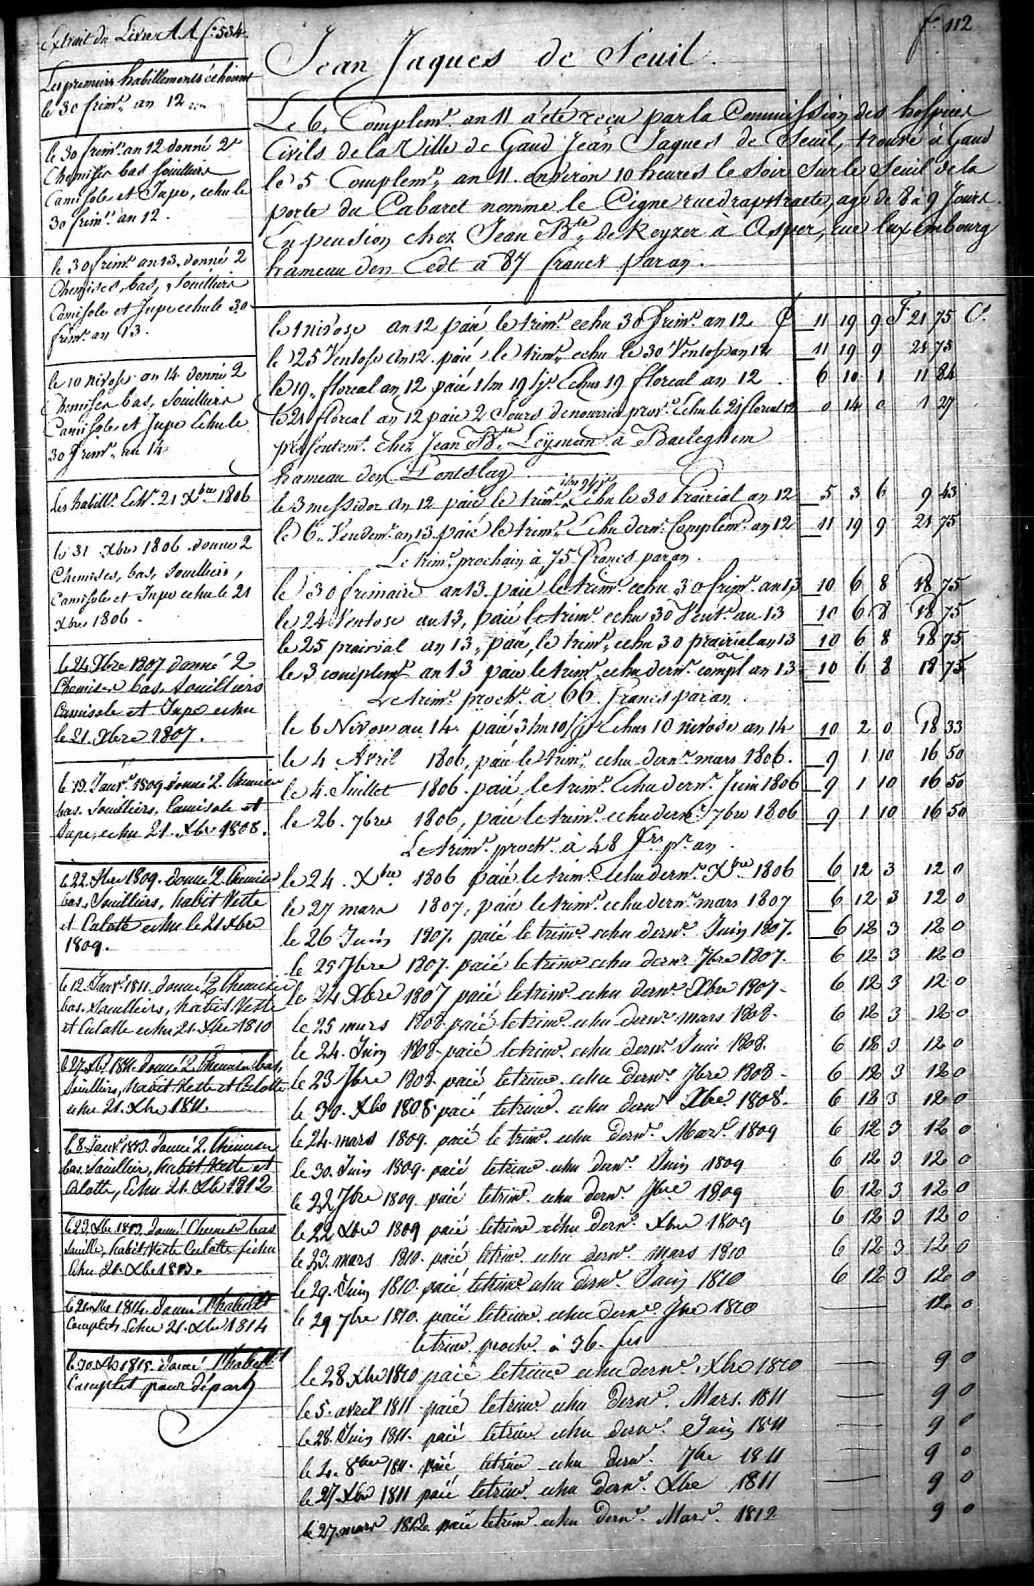 Extrait du Livre AA f° 534.
Les premiers habillements échoient
le 30 frim.e an 12
le 30 frim.e an 12 donné 2
Chemises bas souilliers
Camisole et Jupe, echu le
30 frim.e an 12.
le 30 frim.e an 13. donné 2
Chemises, bas, souilliers
Camisole et Jupe echu le 30
frim.e an 13.
le 10 nivose an 14 donné 2
Chemises bas, souilliers
Camisole et Jupe Echu le
30 frim.e an 14
les habill.s 21 Xbre 1806
le 31 Xbre 1806 donné 2
Chemises, bas, souilliers,
Camisole et Jupe echu le 21
Xbre 1806.
le 24 Xbre 1807 donné 2
Chemises bas souilliers
Camisole et Jupe echu
le 21. Xbre 1807.
le 19. Janv.r 1809 donné 2 Chemises
bas, souilliers, Camisole et
Jupe, echu 21. Xbre 1808.
le 22. Xbre 1809. donné 2 Chemises
bas, souilliers, habit Veste
et Culotte echu le 21 Xbre
1809.
le 12. Janv.r 1811. donné 2 Chemises
bas, souilliers, habit Veste
et Culotte echu 21 Xbre 1810
le 27. Xb.e 1811. donné 2 Chemises bas,
souilliers, habit Veste et Culotte
echu 21. Xbre 1811.
le 8. Janv.r 1813. donné 2. Chemises
bas souillier, habit Veste et
Culotte, Echu 21. Xbre 1812
le 23. Xbre 1813. donné Chemise bas
souillie, habit, Veste Culotte
Echu 21. Xbre 1813.
1814. donné l'habillt
Complet, Echu 21. Xbre 1814
le 30. Xb 1815. donné l'habill.t
Complet pour départ
f° 112
Jean Jaques de Seuil.
Le 6. Complem.e an 11 a été reçu par la Commission des hospices
Civils de la Ville de Gand Jean Jaques de Seuil, trouvé à Gand
le 5 Complem.e an 11. environ 10 heures le soir Sur le Seuil de la
porte du Cabaret nommé le Cigne rue drapstraete, agé de 8 à 9 Jours.
En pension chez Jean B.te de Keyzer à Asper, rue luxembourg
hameau den Cedt à 87 francs par an.
le 1 nivose an 12 paié le trim.e echu 30 frim.e an 12 11 19 9 F 21 75 C.s
le 25 Ventose an 12. paié le trim.e echu le 30 Ventose an 12 11 19 9 21 75
le 19. floreal an 12 paié 1/m 19/jrs Echus 19 floreal an 12. 6 10 1 11 84
le 21 floreal an 12 paié 2 Jours de nourrit. prov.e Echu le 21 floreal 12 0 14 0 1 27
présentem.t chez Jean B.te Leysman à Baeleghem
hameau den Pontslag
le 3 messidor an 12 paié le trim.e Echu le 30 Prairial an 12 5 3 6 9 43
le 6. Vendem.e an 13. paié le trim.e Echu dern.r Complem.e an 12 11 19 9 21 75
Le trim.e prochain à 75 francs par an.
le 30 frimaire an 13. paié le trim.e echu 30 frim.e an 13 10 6 8 18 75
le 24 Ventose an 13, paié le trim.e echu 30 Vent.e an 13 10 6 8 18 75
le 25 prairial an 13, paié, le trim.e echu 30 prairial an 13 10 6 8 18 75
le 3 complem.e an 13 paié le trim.e echu dern.r compl. an 13 10 6 8 18 75
Le trim.e proch.n à 66 francs par an
le 6 Nivose an 14. paié 3/m 10/jrs Echus 10 nivose an 14 10 2 0 18 33
le 4 Avril 1806, paié le trim.e echu dern.r mars 1806. 9 1 10 16 50
le 4. Juillet 1806. paié le trim.e Echu dern.r Juin 1806 9 1 10 16 50
le 26. 7bre 1806, paié le trim.e echu dern.r 7bre 1806 9 1 10 16 50
Le trim.e proch.n à 48 frs pr an
le 24. Xbre 1806 paié le trim.e Echu dern.r Xbre 1806 6 12 3 12 0
le 27 mars 1807, paié le trim.e echu dern.r mars 1807 6 12 3 12 0
le 26 Juin 1807. paié le trim.e echu dern.r Juin 1807. 6 12 3 12 0
le 25 7bre 1807. paié le trim.e echu dern.r 7bre 1807. 6 12 3 12 0
le 24 Xbre 1807 paié le trim.e echu dern.r Xbre 1807. 6 12 3 12 0
le 25 mars 1808. paié le trim.e echu dern.r mars 1808. 6 12 3 12 0
le 24. Juin 1808. paié le trim.e echu dern.r Juin 1808. 6 12 3 12 0
le 23 7bre 1808. paié le trim.e echu dern.r 7bre 1808. 6 12 3 12 0
le 30. Xb.e 1808. paié le trim.e echu dern.r Xbre 1808. 6 12 3 12 0
le 24. mars 1809. paié le trim.e echu dern.r Mars. 1809 6 12 3 12 0
le 30. Juin 1809. paié le trim.e echu dern.r Juin 1809 6 12 3 12 0
le 22 7bre 1809. paié le trim.e echu dern.r 7bre 1809 6 12 3 12 0
le 22 Xbre 1809 paié le trim.e echu dern.r Xbre 1809 6 12 3 12 0
le 23. mars 1810. paié le trim.e echu dern.r mars 1810 6 12 3 12 0
le 29. Juin 1810. paié le trim.e echu dern.r Juin 1810 6 12 3 12 0
le 29 7bre 1810. paié le trim.e echu dern.r 7bre 1810 12 0
le trim.e proch.n à 36. frs
le 28 Xbre 1810 paié le trim.e echu dern.r Xbre 1810 9 0
le 5. avril 1811 paié le trim.e echu dern.r Mars. 1811 9 0
le 28. Juin 1811. paié le trim.e echu dern.r Juin 1811 9 0
le 4. 8bre 1811. paié le trim.e echu dern.r 7bre 1811 9 0
le 27 Xbre 1811 paié le trim.e echu dern.r Xbre 1811 9 0
le 27 mars 1812 paié le trim.e echu dern.r Mars. 1812 9 0